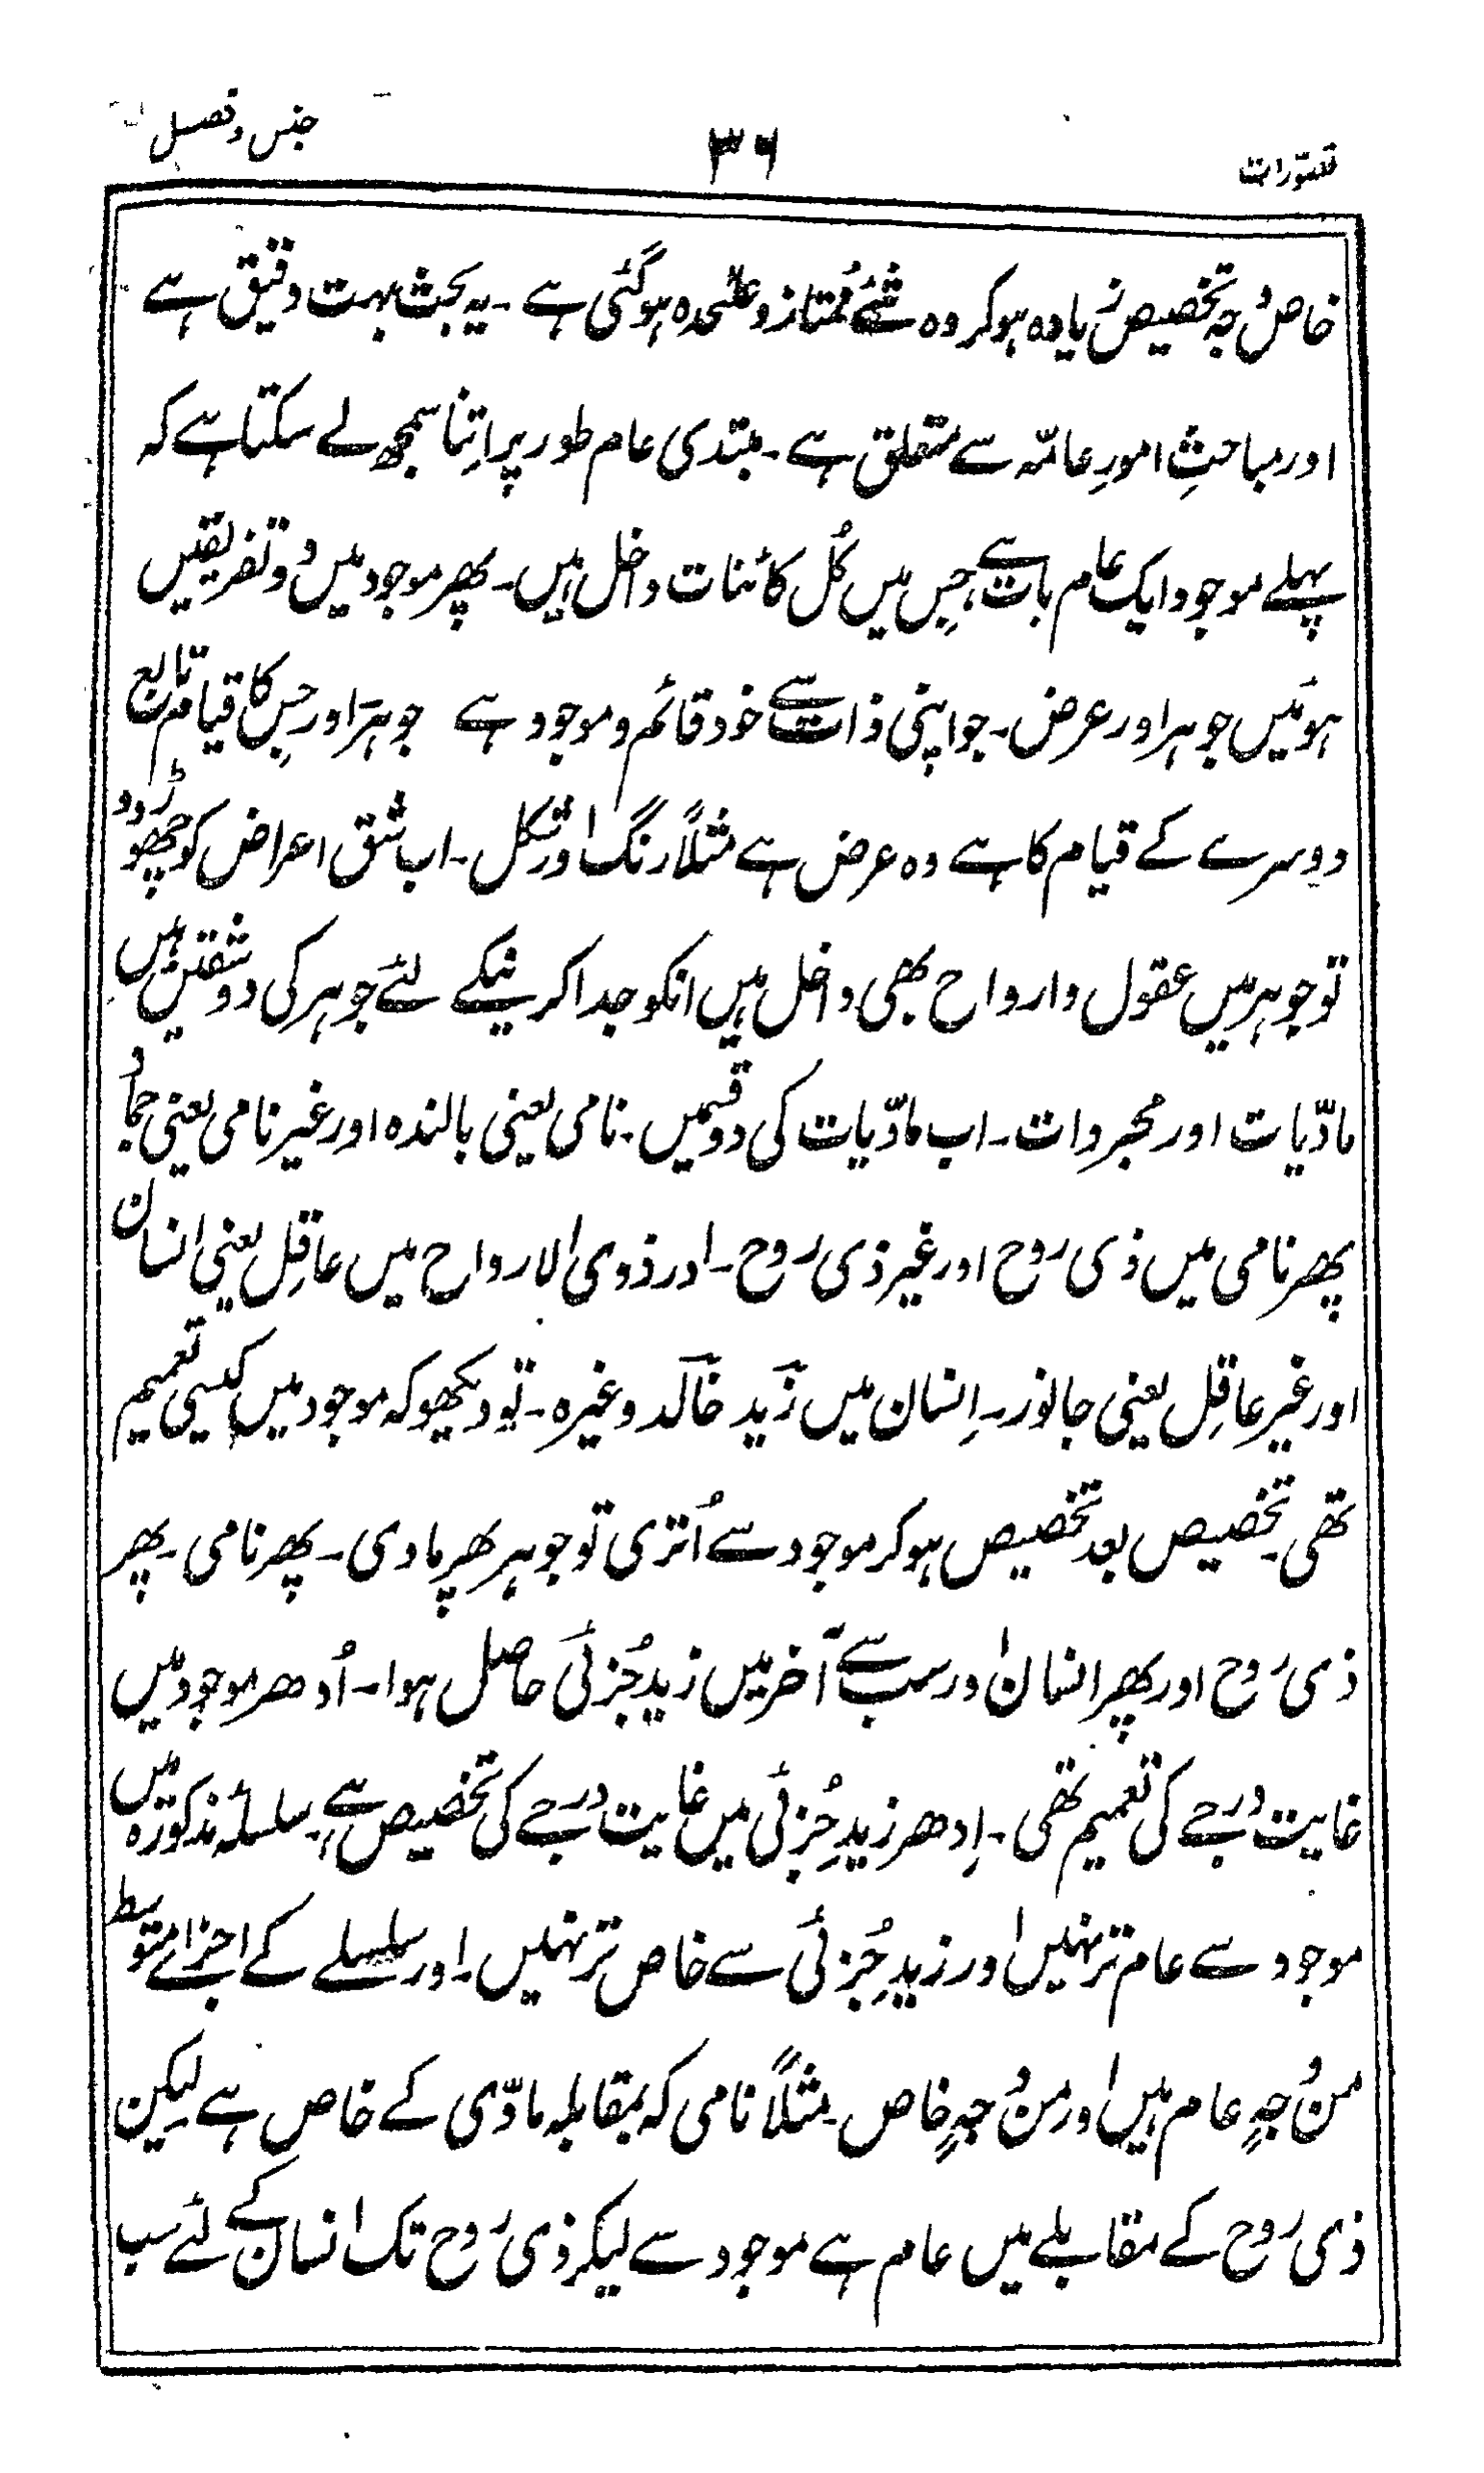 تصورات ۳۶ جنس و فصل
خاص وجہ تخصیص زیادہ ہو کر وہ شئے ممتاز و علٰحدہ ہو گئی ہے ۔ یہ بحث بہت دقیق ہے
اور مباحثِ امورِ عامّہ سے متعلق ہے ۔ مبتدی عام طور پر اِتنا سمجھ لے سکتا ہے کہ
پہلے موجود ایک عام بات ہے جِس میں کُل کائنات داخل ہیں ۔ پھر موجود میں دو تفریقیں
ہوئیں جوہر اور عرض ۔ جو اپنی ذات سے خود قائم و موجود ہے جوہر اور جِس کا قیام تابع
دوسرے کے قیام کا ہے وہ عرض ہے مثلاً رنگ اور شکل ۔ اب شق اعراض کو چھوڑ دو
تو جوہر میں عقول و ارواح بھی داخل ہیں انکو جدا کرنیکے لئے جوہر کی دو شقیں ہیں
مادّیات اور مجردات ۔ اب مادّیات کی دو قسمیں ۔ نامی یعنی بالندہ اور غیر نامی یعنی جماد
پھر نامی میں ذی روح اور غیر ذی روح ۔ اور ذوی الارواح میں عاقِل یعنی انسان
اور غیر عاقِل یعنی جانور ۔ اِنسان میں زید خالد وغیرہ ۔ تو دیکھو کہ موجود میں کیسی تعمیم
تھی ۔ تخصیص بعد تخصیص ہو کر موجود سے اُتری تو جوہر پھر مادی ۔ پھر نامی ۔ پھر
ذی رُوح اور پھر انسان اور سب سے آخر میں زید جُزئی حاصل ہوا ۔ اُدھر موجود میں
غایت درجے کی تعمیم تھی ۔ اِدھر زیدِ جُزئی میں غایت درجے کی تخصیص ہے ۔ سلسلۂ مذکورہ میں
موجود سے عام تر نہیں اور زیدِ جُزئی سے خاص تر نہیں ۔ اور سلسلے کے اجزائے متوسط
من وُجہٍ عام ہیں اور من وُجہٍ خاص ۔ مثلاً نامی کہ بمقابلہ مادّی کے خاص ہے لیکن
ذی رُوح کے مقابلے میں عام ہے موجود سے لیکر ذی رُوح تک انسان کے لئے سب